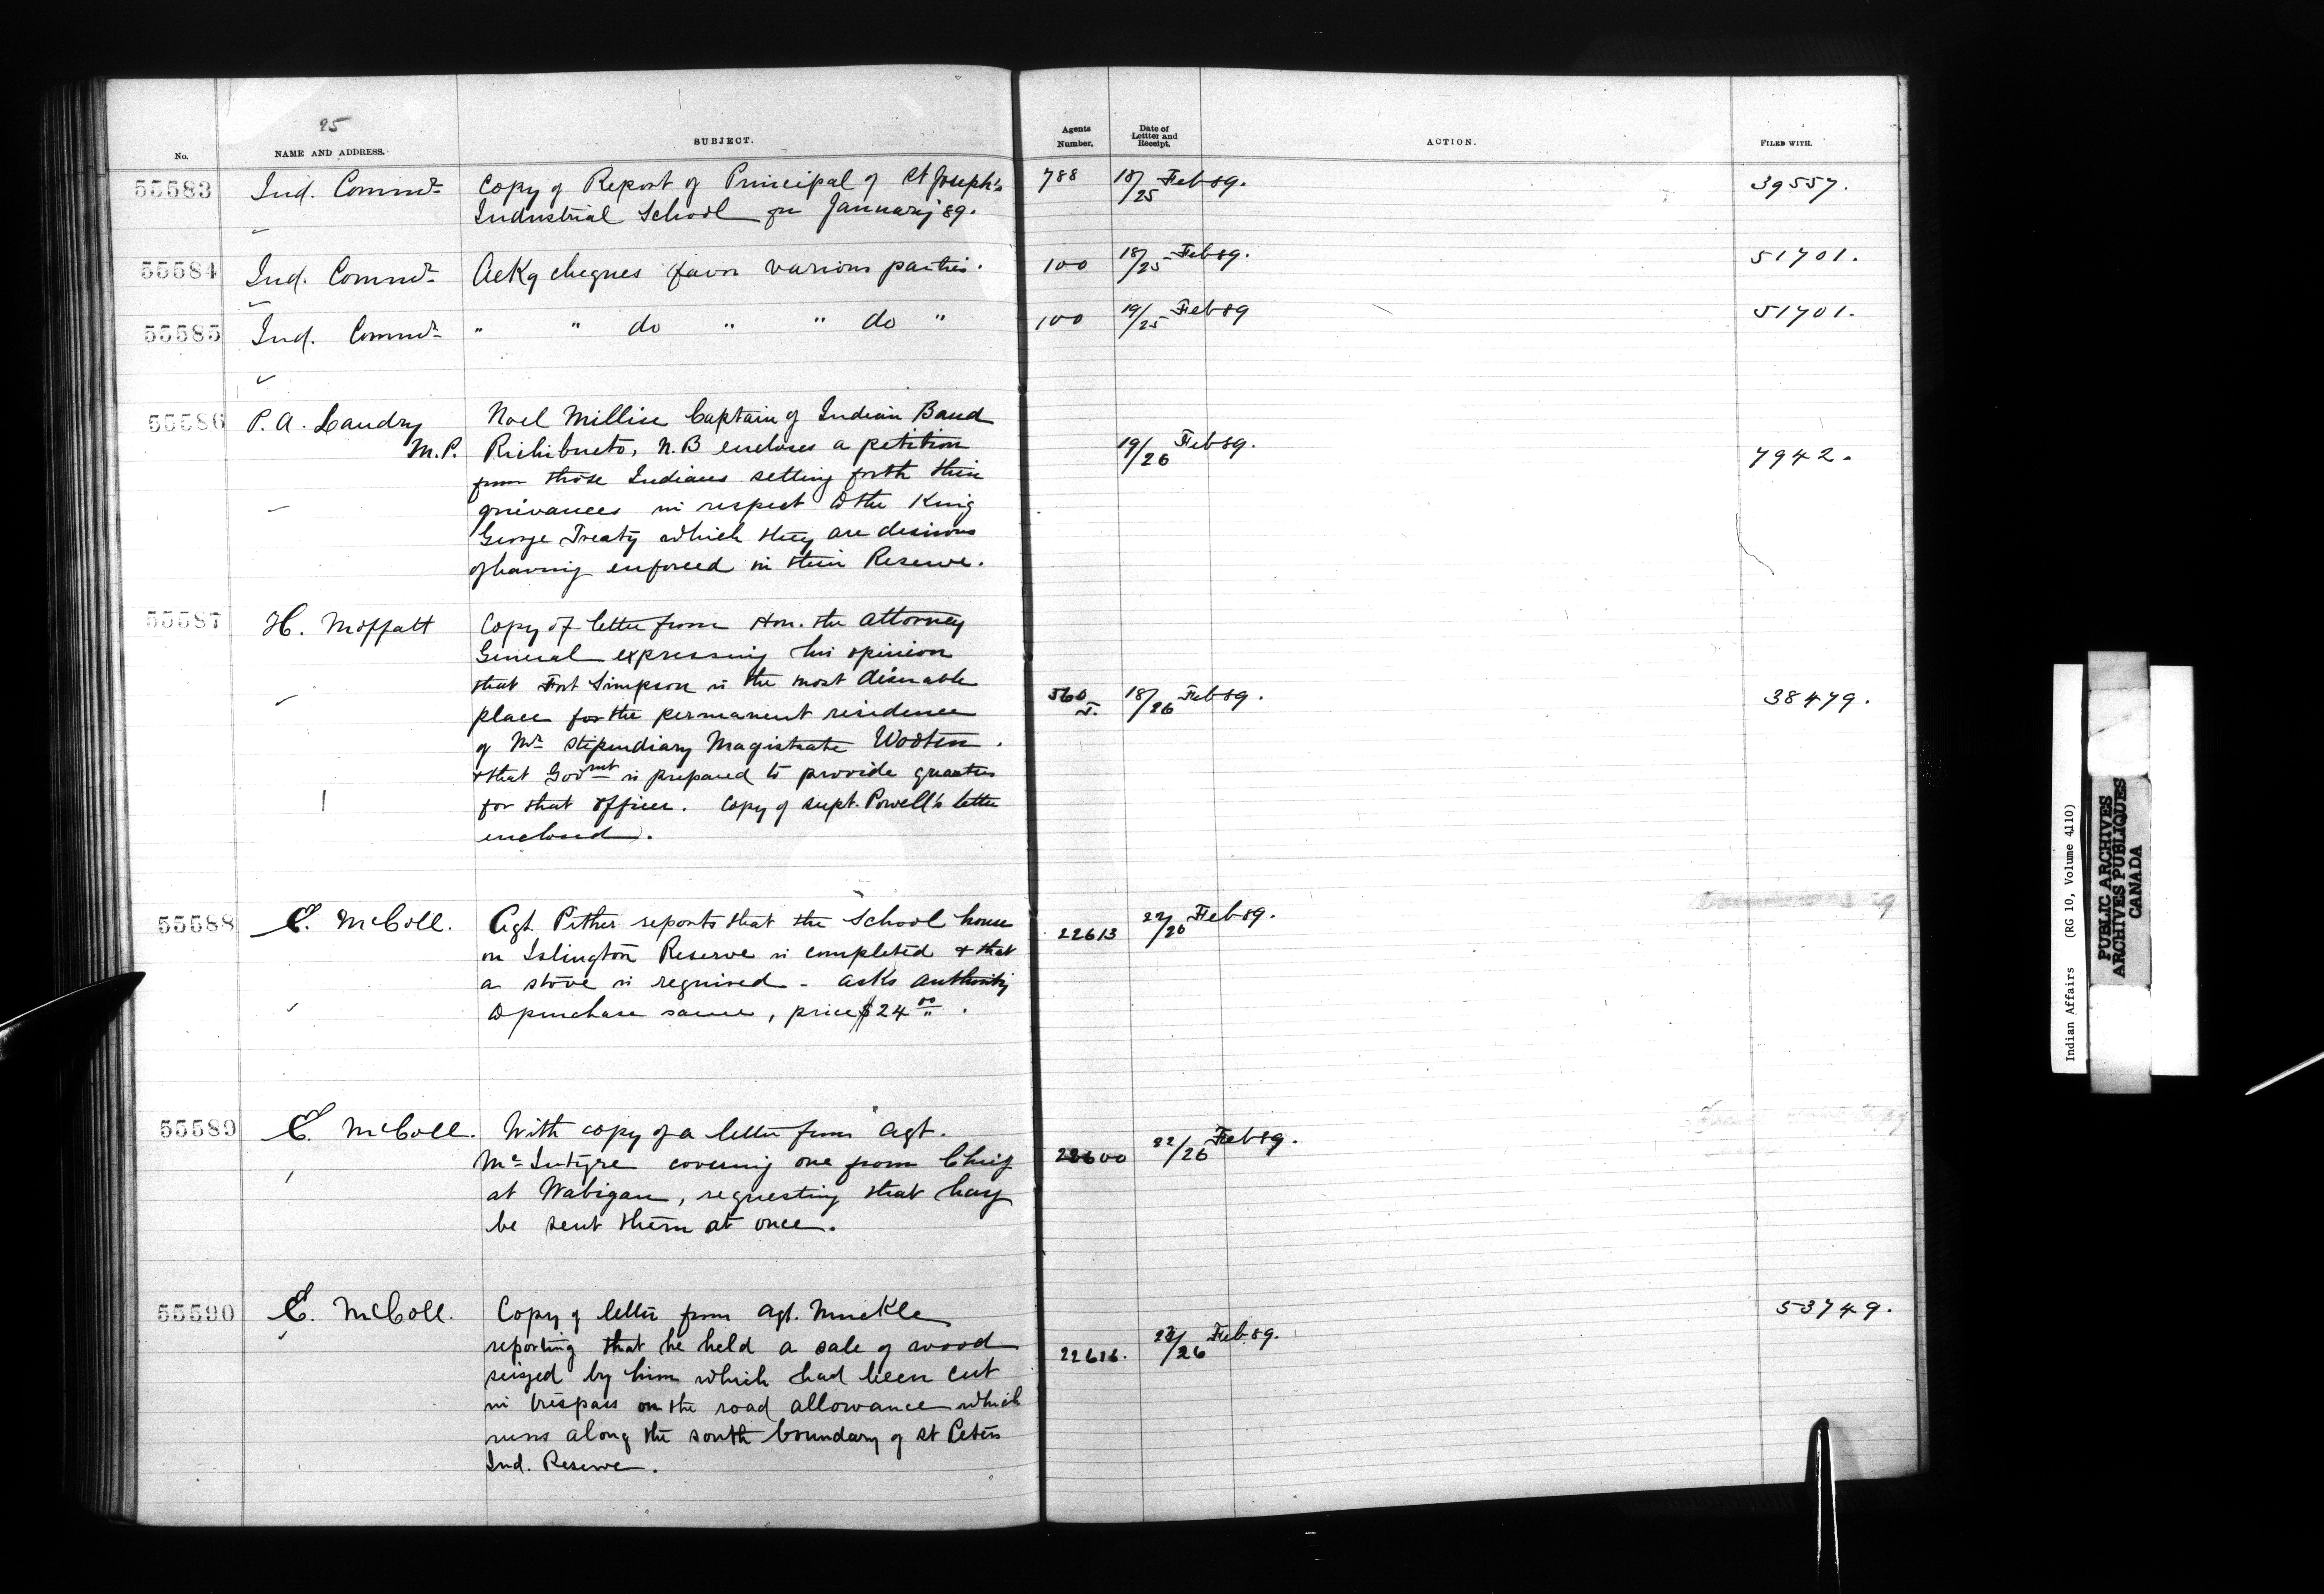 25
No. NAME AND ADDRESS. SUBJECT. Agents Number. Date of Letter and Receipt. ACTION. FILED WITH.
55583 Ind. Commr Copy of Report of Principal of St Joseph's 788 18/25 Feb 89. 39557.
Industrial School for January '89.
55584 Ind. Commr Ackg cheques favor various parties. 100 18/25 Feb 89. 51701.
55585 Ind. Commr " " do " " do " 100 19/25 Feb 89 51701.
55586 P. A. Landry Noel Millise Captain of Indian Band
M.P. Richibucto, N.B encloses a petition 19/26 Feb 89. 7942.
from those Indians setting forth their
grievances in respect to the King
George Treaty which they are desirous
of having enforced in their Reserve.
55587 H. Moffatt Copy of letter from Hon. the Attorney
General expressing his opinion
that Fort Simpson is the most desirable 560 T. 18/26 Feb 89. 38479.
place for the permanent residence
of Mr Stipendiary Magistrate Wootten.
& that Govmt is prepared to provide quarters
for that officer. Copy of Supt. Powell's letter
enclosed.
55588 E. McColl. Agt. Pither reports that the School house 22613 22/26 Feb 89.
on Islington Reserve is completed & that
a stove is required - asks authority
to purchase same, price $24 00.
55589 E. McColl. With copy of a letter from Agt.
McIntyre covering one from Chief 22600 22/26 Feb 89.
at Wabigan, requesting that hay
be sent them at once.
55590 E. McColl. Copy of letter from Agt. Muckle 53749.
reporting that he held a sale of wood 22616. 22/26 Feb 89.
seized by him which had been cut
in trespass on the road allowance which
runs along the south boundary of St Peters
Ind. Reserve.
Indian Affairs (RG 10, Volume 4110)
PUBLIC ARCHIVES
ARCHIVES PUBLIQUES
CANADA